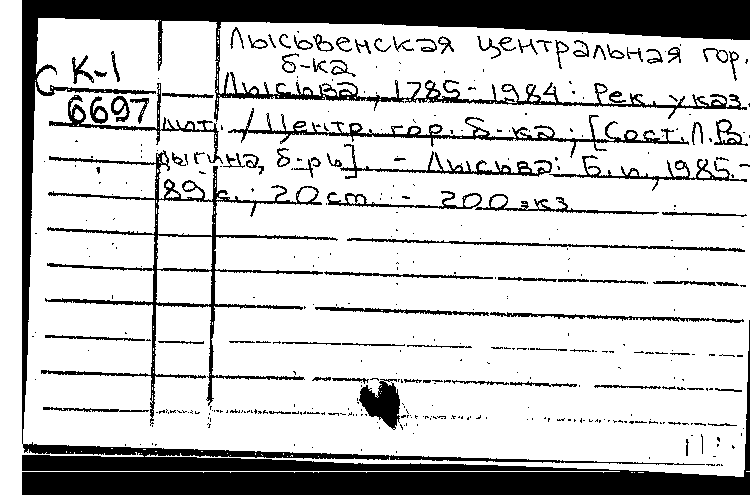 Лысьвенская центральная гор.
б-ка
С К-1
6697
Лысьва, 1785-1984: Рек. указ.
лит. / Центр. гор. б-ка; [Сост. Л. Ра-
дыгина, б-рь]. - Лысьва: Б.и., 1985.-
89 с.; 20 cm. - 200 экз